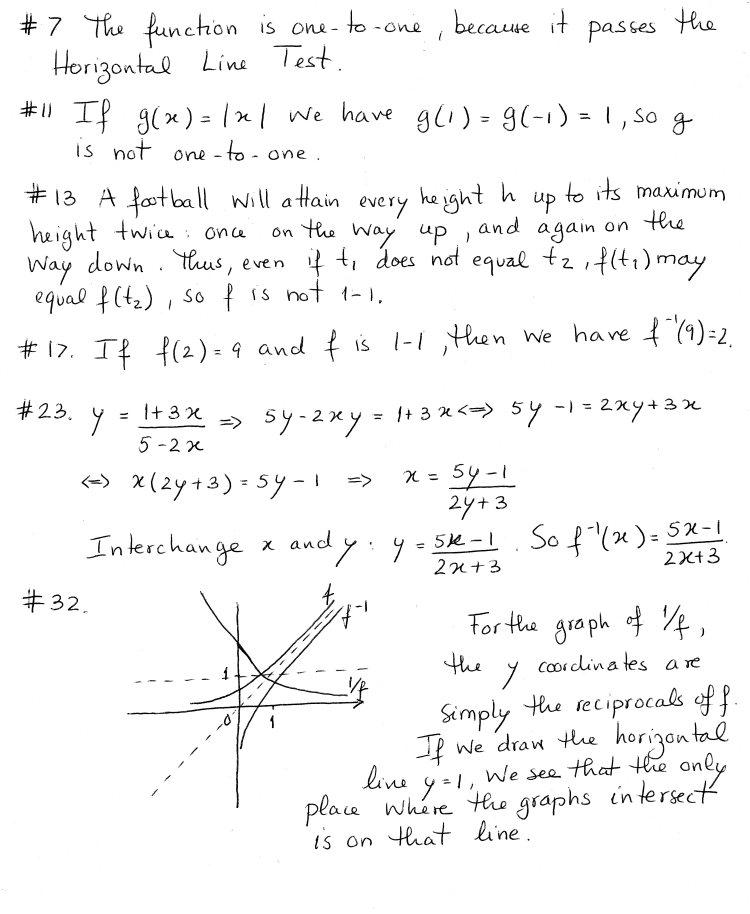 #7 The function is one-to-one, because it passes the
Horizontal Line Test.
#11 If g(x) = |x| we have g(1) = g(-1) = 1, so g
is not one-to-one.
#13 A football will attain every height h up to its maximum
height twice: once on the way up, and again on the
way down. Thus, even if t₁ does not equal t₂, f(t₁) may
equal f(t₂), so f is not 1-1.
#17. If f(2) = 9 and f is 1-1, then we have f⁻¹(9)=2.
#23. y = (1+3x)/(5-2x) => 5y-2xy = 1+3x <=> 5y-1 = 2xy+3x
<=> x(2y+3) = 5y-1 => x = (5y-1)/(2y+3)
Interchange x and y: y = (5x-1)/(2x+3). So f⁻¹(x) = (5x-1)/(2x+3).
#32.
f
f⁻¹
1
1/f
0
1
For the graph of 1/f,
the y coordinates are
simply the reciprocals of f.
If we draw the horizontal
line y=1, we see that the only
place where the graphs intersect
is on that line.